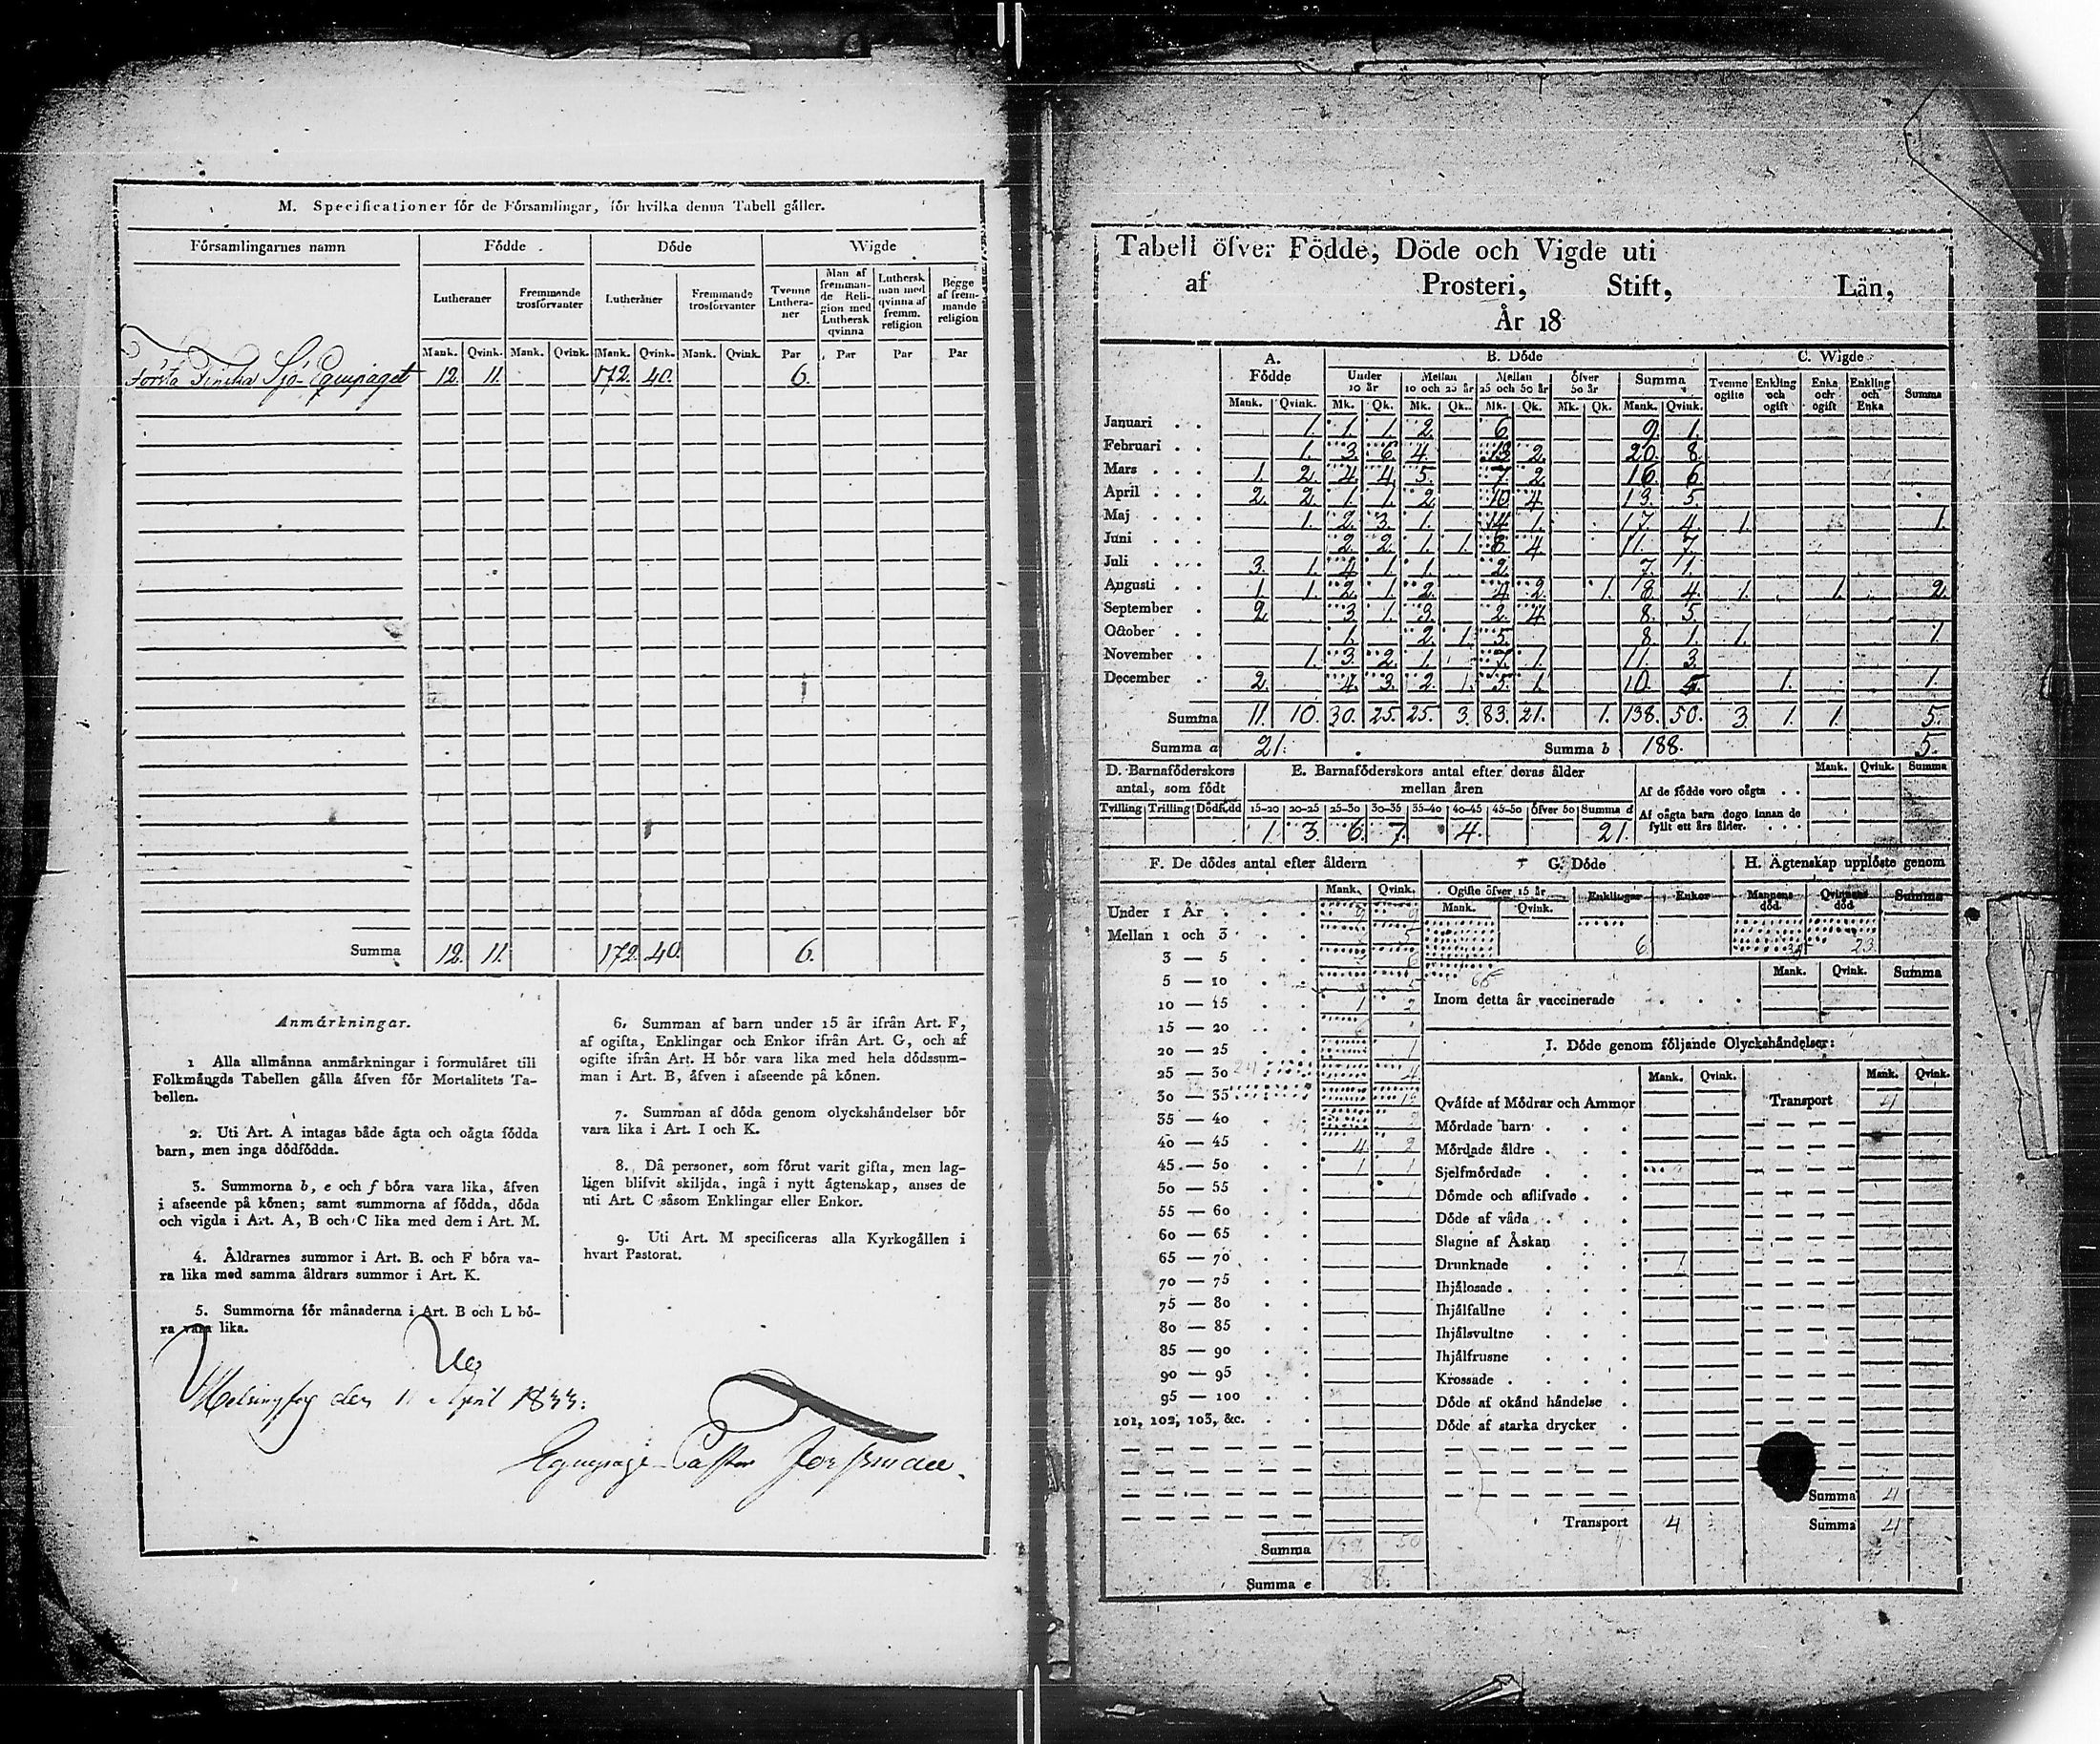 M. Specificationer för de Församlingar, för hvilka denna Tabell gäller.
Församlingarnes namn Födde Döde Wigde
Lutheraner Fremmande trosförvanter Lutheraner Fremmande trosförvanter Tvenne Lutheraner Man af fremmande Religion med Luthersk qvinna Luthersk man med qvinna af fremm. religion Begge af fremmande religion
Mank. Qvink. Mank. Qvink. Mank. Qvink. Mank. Qvink. Par Par Par Par
Första Finska Sjö-Equipaget 12. 11. 172. 40. 6.
Summa 12. 11. 172. 40. 6.
Anmärkningar.
1 Alla allmänna anmärkningar i formuläret till
Folkmängds Tabellen gälla äfven för Mortalitets Ta-
bellen.
2. Uti Art. A intagas både ägta och oägta födda
barn, men inga dödfödda.
3. Summorna b, e och f böra vara lika, äfven
i afseende på könen; samt summorna af födda, döda
och vigda i Art. A, B och C lika med dem i Art. M.
4. Åldrarnes summor i Art. B. och F böra va-
ra lika med samma åldrars summor i Art. K.
5. Summorna för månaderna i Art. B och L bö-
ra vara lika.
6. Summan af barn under 15 år ifrån Art. F,
af ogifta, Enklingar och Enkor ifrån Art. G, och af
ogifte ifrån Art. H bör vara lika med hela dödssum-
man i Art. B, äfven i afseende på könen.
7. Summan af döda genom olyckshändelser bör
vara lika i Art. I och K.
8. Då personer, som förut varit gifta, men lag-
ligen blifvit skiljda, ingå i nytt ägtenskap, anses de
uti Art. C såsom Enklingar eller Enkor.
9. Uti Art. M specificeras alla Kyrkogällen i
hvart Pastorat.
Helsingfors den April 1833.
Equipage-Pastor Forssman.
Tabell öfver Födde, Döde och Vigde uti
af Prosteri, Stift, Län,
År 18
A. Födde B. Döde C. Wigde
Under 10 år Mellan 10 och 25 år Mellan 25 och 50 år Öfver 50 år Summa Tvenne ogifte Enkling och ogift Enka och ogift Enkling och Enka Summa
Mank. Qvink. Mk. Qk. Mk. Qk. Mk. Qk. Mk. Qk. Mank. Qvink.
Januari 1. 1. 1. 2. 6. 9. 1.
Februari 1. 3. 6. 4. 13. 2. 20. 8.
Mars 1. 2. 4. 4. 5. 7. 2. 16. 6.
April 2. 2. 1. 1. 2. 10. 4. 13. 5.
Maj 1. 2. 3. 1. 14. 1. 17. 4. 1. 1.
Juni 2. 2. 1. 1. 8. 4. 11. 7.
Juli 3. 1. 4. 1. 1. 2. 7. 1.
Augusti 1. 1. 2. 1. 2. 4. 2. 1. 8. 4. 1. 1. 2.
September 2. 3. 1. 3. 2. 4. 8. 5.
October 1. 2. 1. 5. 8. 1. 1. 1.
November 1. 3. 2. 1. 7. 1. 11. 3.
December 2. 4. 3. 2. 1. 5. 1. 10. 5. 1. 1.
Summa 11. 10. 30. 25. 25. 3. 83. 21. 1. 138. 50. 3. 1. 1. 5.
Summa a 21. Summa b 188. 5.
D. Barnaföderskors antal, som födt
Tvilling Trilling Dödfödd
E. Barnaföderskors antal efter deras ålder mellan åren
15-20 20-25 25-30 30-35 35-40 40-45 45-50 Öfver 50 Summa d
1. 3. 6. 7. 4. 21.
Mank. Qvink. Summa
Af de födde voro oägta
Af oägta barn dogo innan de fyllt ett års ålder.
F. De dödes antal efter åldern
Mank. Qvink.
Under 1 År 9 9
Mellan 1 och 3 5
3 — 5 6
5 — 10 5
10 — 15 1 2
15 — 20
20 — 25 1
25 — 30 4
30 — 35
35 — 40
40 — 45 4 2
45 — 50 1 1
50 — 55
55 — 60
60 — 65
65 — 70
70 — 75
75 — 80
80 — 85
85 — 90
90 — 95
95 — 100
101, 102, 103, &c.
Summa 50
Summa e
G. Döde
Ogifte öfver 15 år Enklingar Enkor
Mank. Qvink.
68 6.
H. Ägtenskap upplöste genom
Mannens död Qvinnans död Summa
23.
Mank. Qvink. Summa
Inom detta år vaccinerade
I. Döde genom följande Olyckshändelser:
Mank. Qvink. Mank. Qvink.
Qväfde af Mödrar och Ammor Transport 4
Mördade barn
Mördade äldre
Sjelfmördade
Dömde och aflifvade
Döde af våda
Slagne af Åskan
Drunknade 1
Ihjälosade
Ihjälfallne
Ihjälsvultne
Ihjälfrusne
Krossade
Döde af okänd händelse
Döde af starka drycker
Summa 4
Transport 4 Summa 4